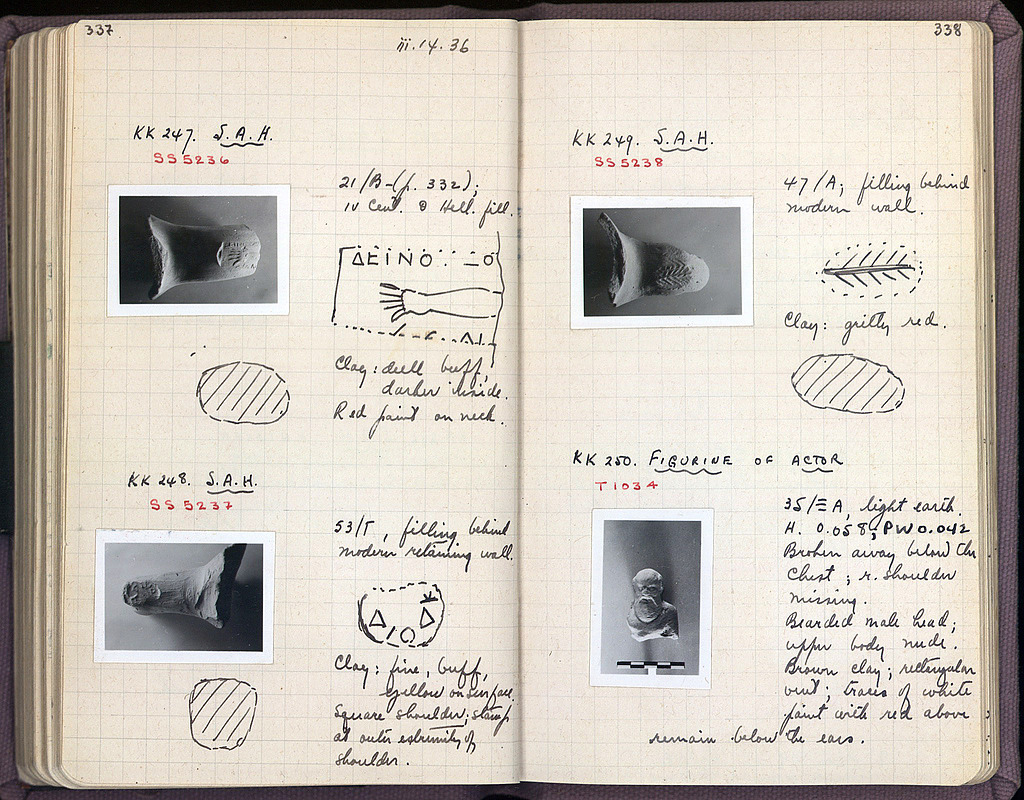 337
iii.14.36
KK 247. S.A.H.
SS5236
21/B-(p. 332);
IV Cent. & Hell. fill.
ΔΕΙΝΟ
Clay: dull buff,
darker inside.
Red paint on neck.
KK 248. S.A.H.
SS 5237
53/Γ, filling behind
modern retaining wall.
Δ Ι Ο Δ
Clay: fine, buff,
yellow on surface.
Square shoulder; stamp
at outer extremity of
shoulder.
338
KK 249. S.A.H.
SS5238
47/A; filling behind
modern wall.
Clay: gritty red.
KK 250. FIGURINE OF ACTOR
T1034
35/ΞA, light earth.
H. 0.058; PW 0.042
Broken away below the
chest; r. shoulder
missing.
Bearded male head;
upper body nude.
Brown clay; rectangular
vent; traces of white
paint with red above
remain below the ears.